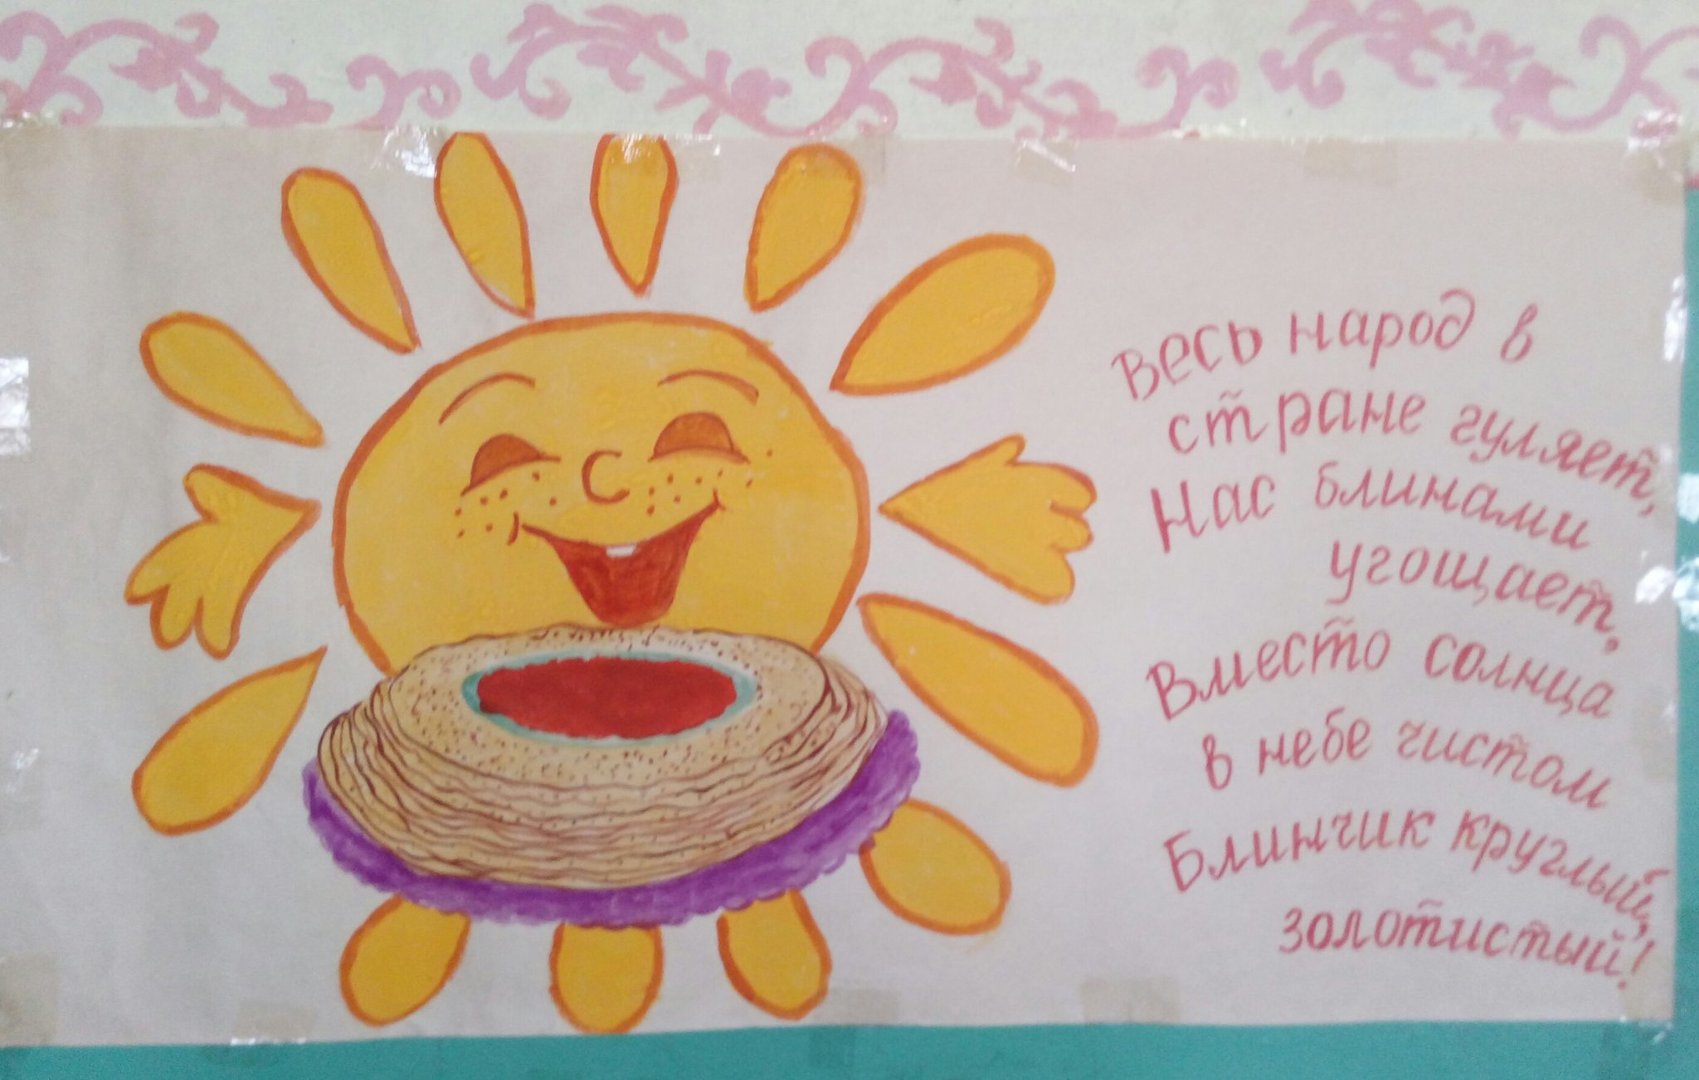 Весь народ в
стране гуляет,
Нас блинами
угощает.
Вместо солнца
в небе чистом
Блинчик круглый,
золотистый!